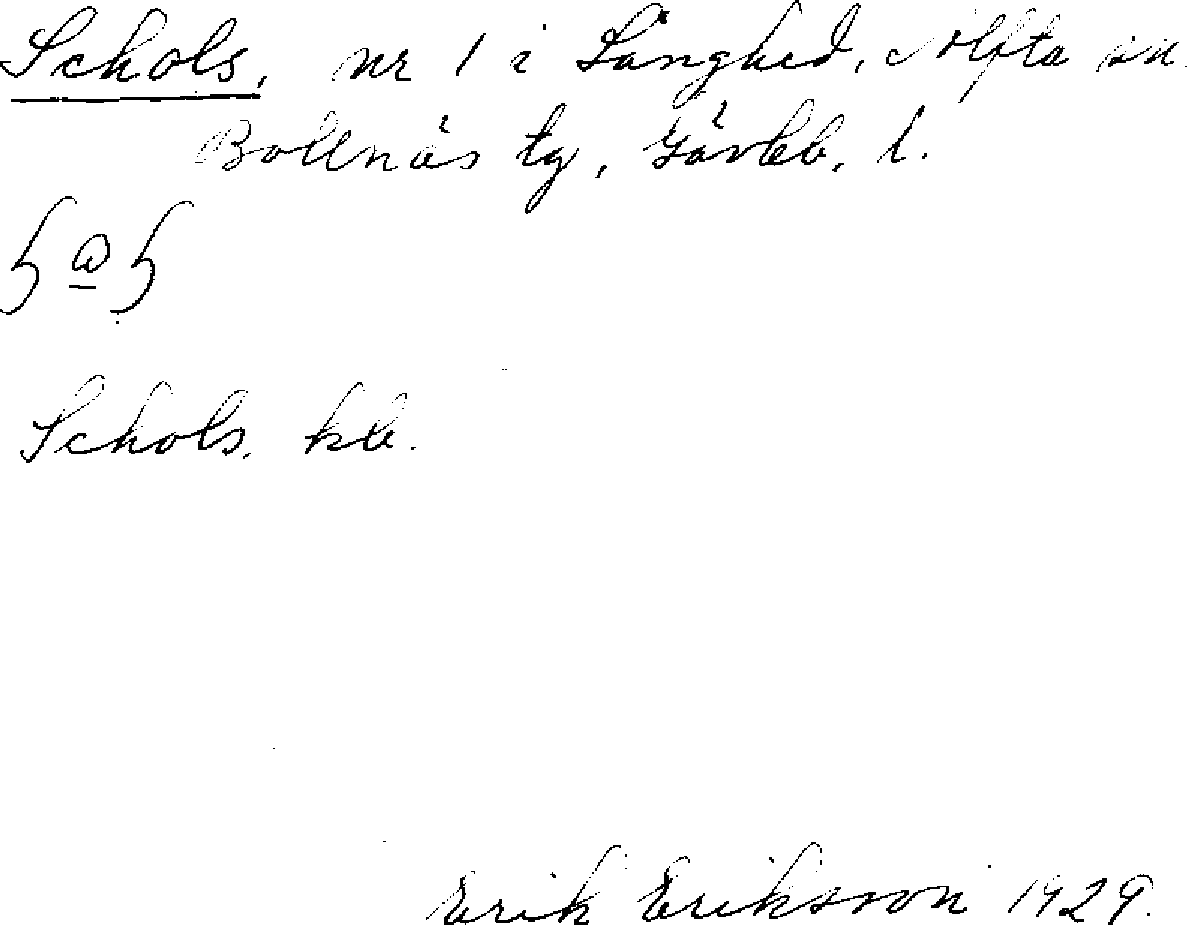 Schols, nr 1 i Långhed, Alfta sn.
Bollnäs tg, Gävleb. l.
Schols. kb.
Erik Eriksson 1929.